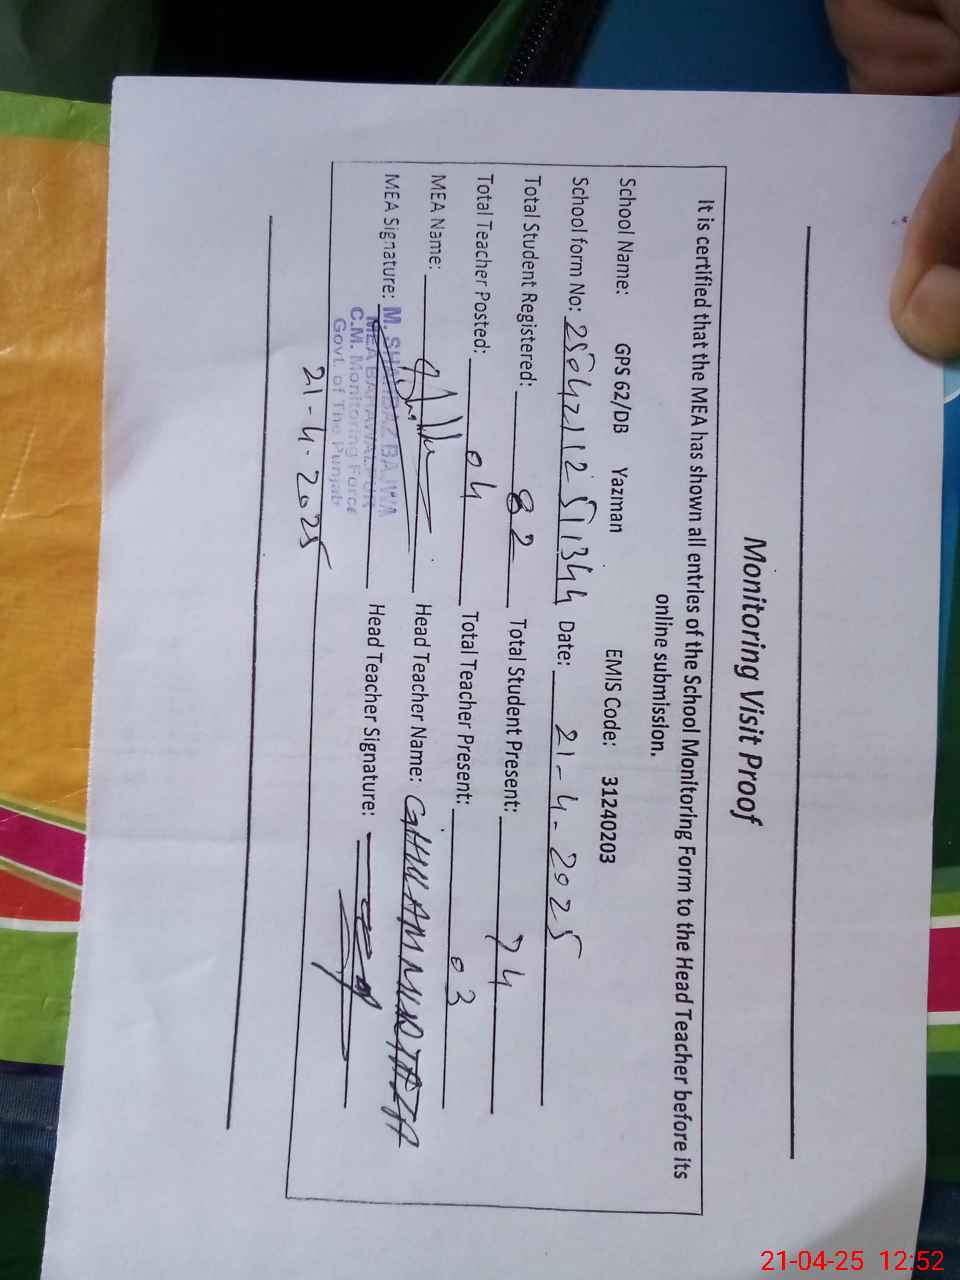 Monitoring Visit Proof
It is certified that the MEA has shown all entries of the School Monitoring Form to the Head Teacher before its
online submission.
School Name: GPS 62/DB Yazman EMIS Code: 31240203
School form No: 25042112511344 Date: 21-4-2025
Total Student Registered: 82 Total Student Present: 74
Total Teacher Posted: 04 Total Teacher Present: 03
MEA Name: Head Teacher Name: GHULAM MURTAZA
MEA Signature: M. SHAHBAZ BAJWA Head Teacher Signature:
MEA BAHAWALPUR
C.M. Monitoring Force
Govt. of The Punjab
21-4-2025
21-04-25 12:52